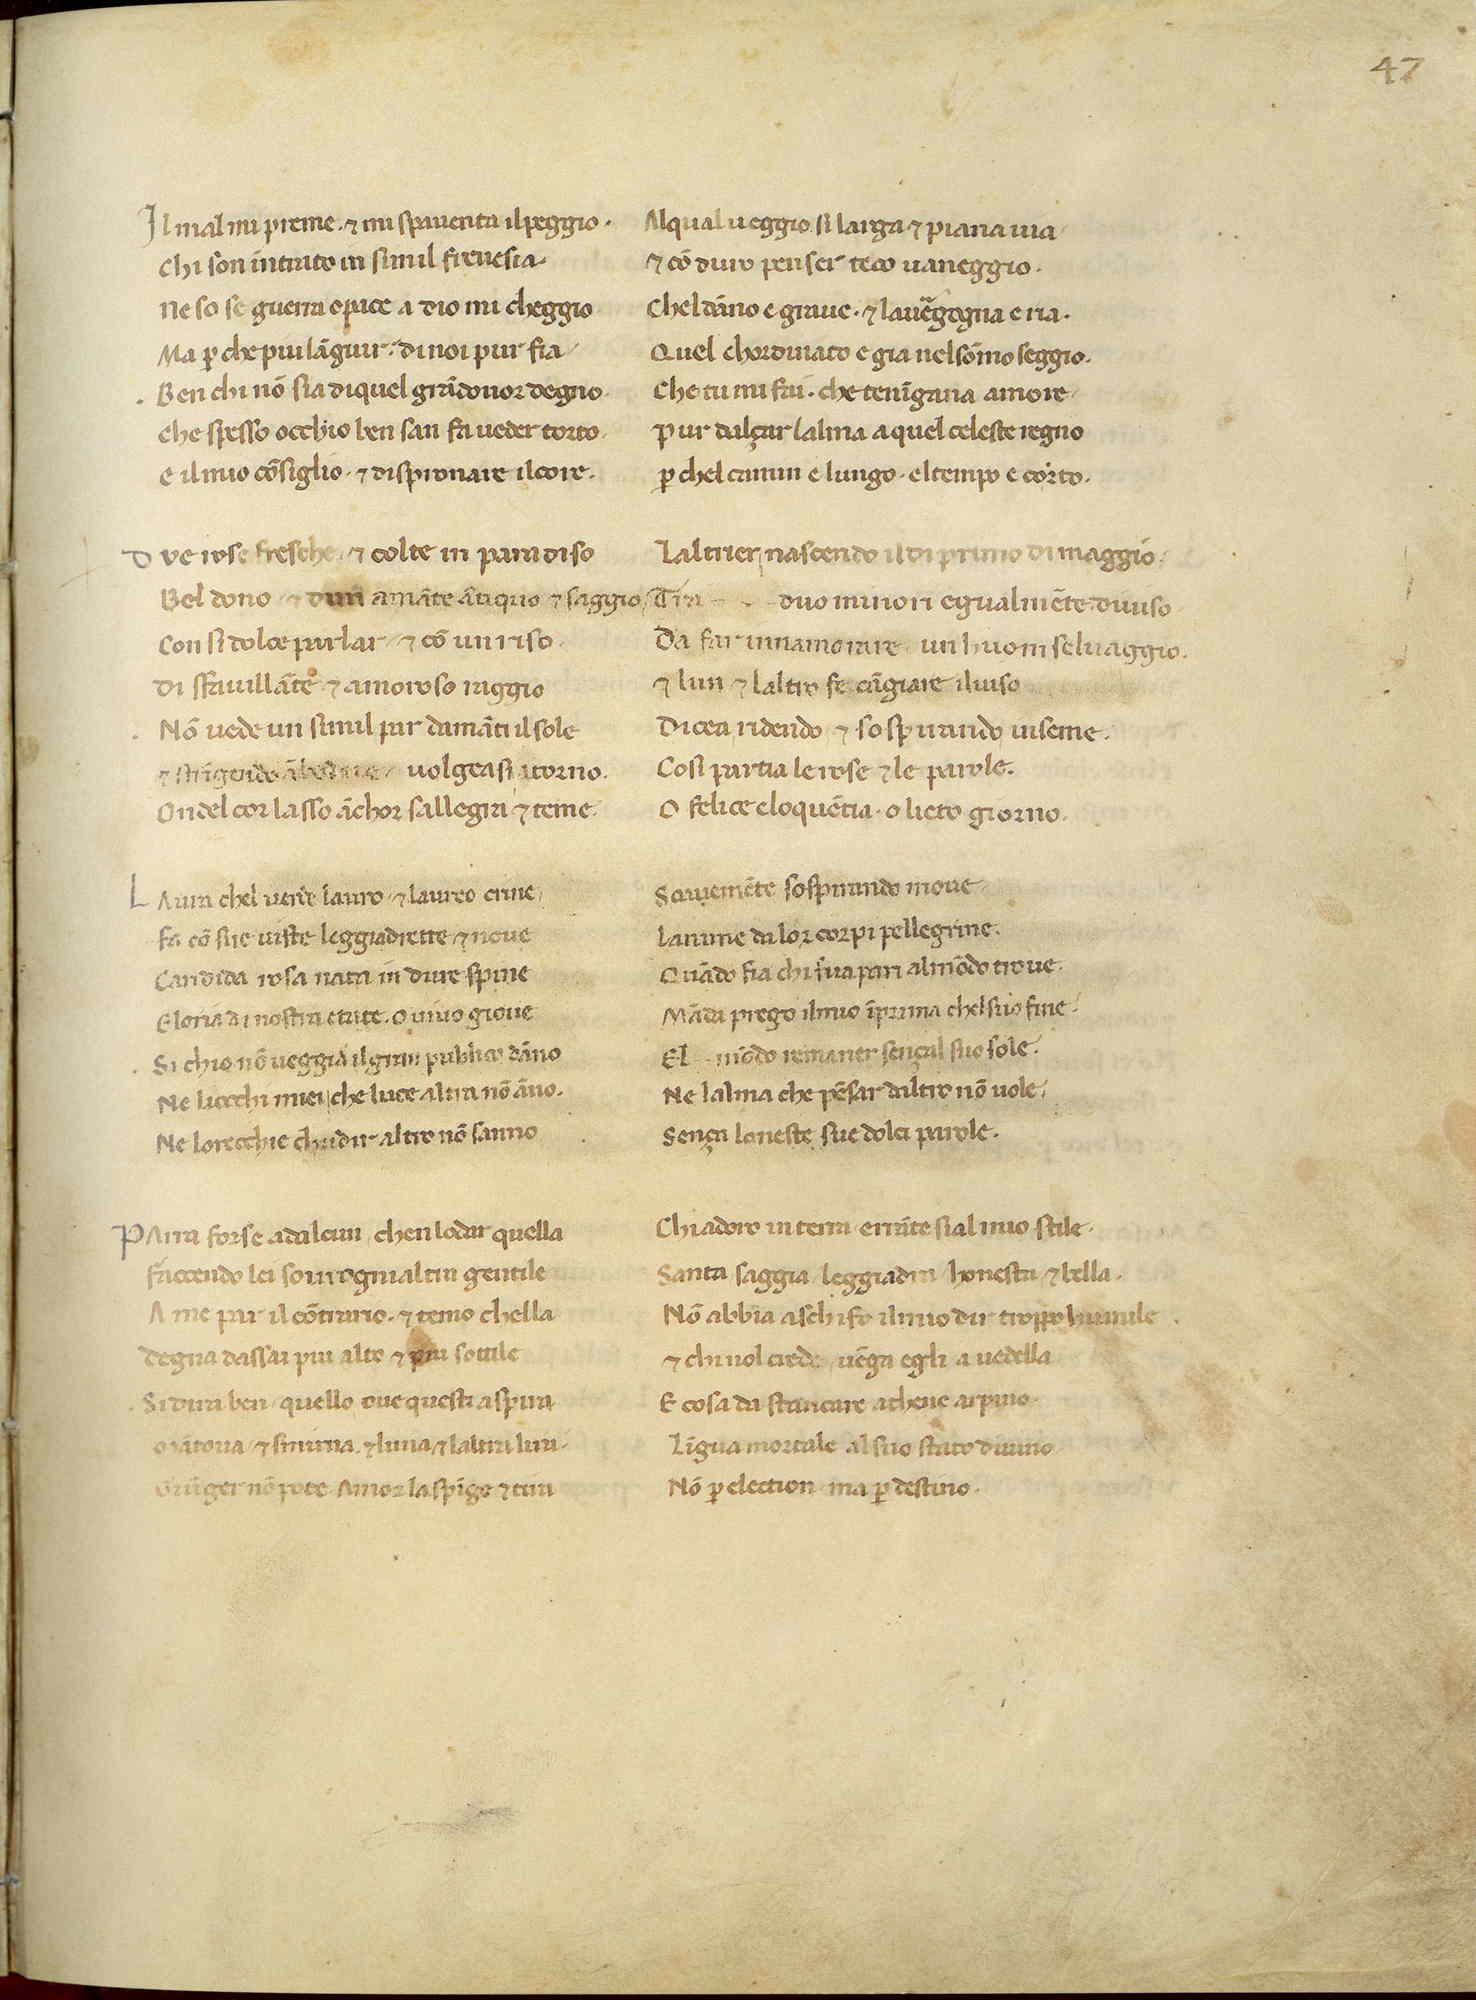 47
Il mal mi preme · & mi spauenta il peggio · Al qual ueggio si larga & piana uia/
Chi son intrato in simil frenesia · & cō duro penser teco uaneggio ·
Ne so se guerra o pace a dio mi cheggio Chel dāno e graue · & la uergogna e ria ·
Ma p che piu lāguir · di noi pur fia/ Quel chordinato e gia nel sōmo seggio ·
· Ben chi nō sia di quel grādonor degno · Che tu mi fai · che tenīgana amore/
Che spesso occhio ben san fa ueder torto · Pur dalçar lalma a quel celeste regno
E il mio cōsiglio · & di spronare il core · p chel camin e lungo · el tempo e corto ·
Due rose fresche / & colte in paradiso Laltrier nascendo il di primo di maggio ·
Bel dono / & dun amāte ātiquo & saggio / Tra duo minori egualmēte diuiso
Con si dolce parlar / & cō un riso · Da far innamorare / un huom seluaggio ·
Di sfauillāte & amoroso raggio & lun & laltro fe cāgiare il uiso
· Nō uede un simil par damāti il sole Dicea ridendo / & sospirando inseme ·
& strīgendo ābedue / uolgeasi atorno · Cosi partia le rose & le parole ·
Ondel cor lasso āchor sallegra & teme · O felice eloquētia · o lieto giorno ·
LAura chel uerde lauro / & laureo crine / Soauemēte sospirando moue/
Fa cō sue uiste leggiadrette & noue Lanime da lor corpi pellegrine ·
Candida rosa nata in dure spine Quādo fia chi sua pari al mōdo troue ·
Gloria di nostra etate · o uiuo gioue Māda prego il mio īprima chel suo fine ·
· Si chio nō ueggia il gran publico dāno El mōdo remaner sençal suo sole ·
Ne liocchi miei / che luce altra nō āno · Ne lalma che pēsar daltro nō uole /
Ne lorecchie chudir altro nō sanno Sença loneste sue dolci parole ·
PArra forse ad alcun / chen lodar quella Chi adoro in terra / errāte sia l mio stile ·
Faccendo lei sourogni altra gentile Santa saggia / leggiadra / honesta / & bella ·
A me par il cōtrario · & temo chella Nō abbia a schifo il mio dir troppo humile ·
Degna dassai piu alto & piu sottile & chi nol crede / uēga egli a uedella
· Si dira ben / quello oue questi aspira E cosa da stancare athene arpino ·
Mātoua / & smirna / & luna / & laltra lira · Līgua mortale al suo stato diuino
Giūger nō pote Amor la spīge & tira Nō p election / ma p destino ·